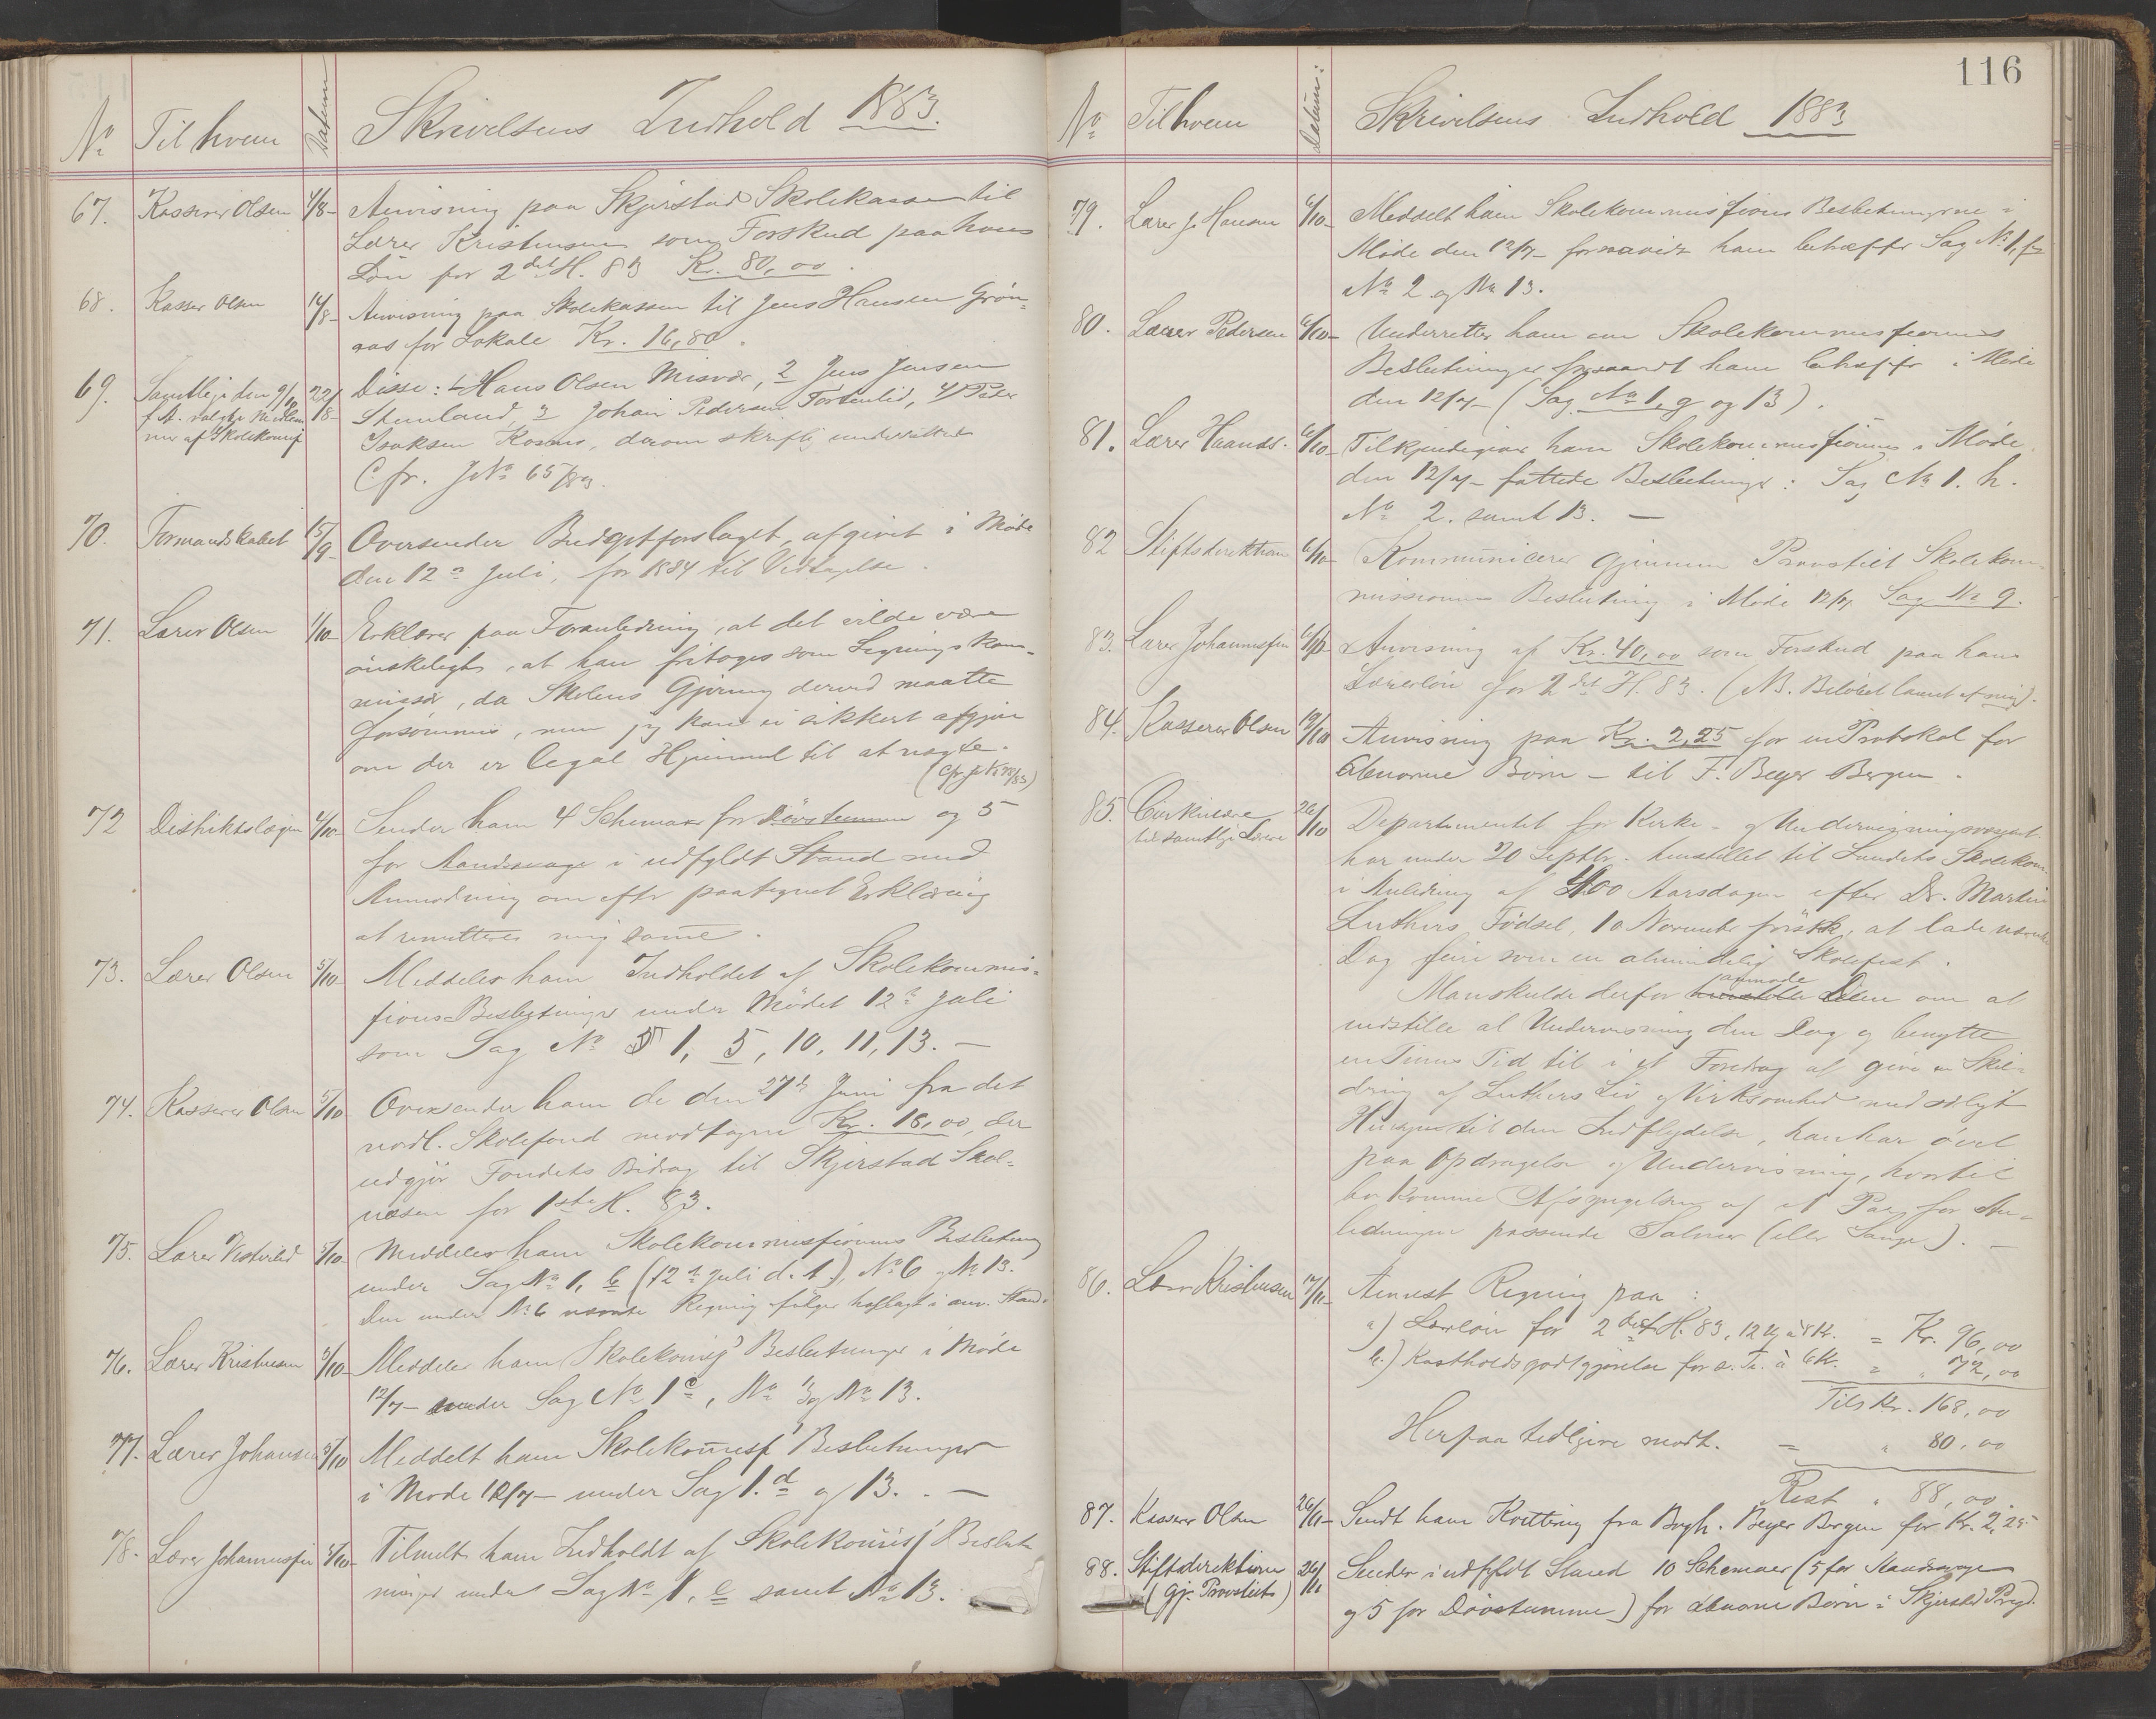 No Til hvem Datum Skrivelsens Indhold 1883.
67. Kasserer Olsen 4/8- Anvisning paa Skjerstad Skolekasse til
Lærer Kristensen som Forskud paa hans
Løn for 2det H. 83 Kr. 80,00.
68. Kasser Olsen 14/8- Anvisning paa Skolekassen til Jens Hansen Grøn-
aas for Lokale Kr. 16,80.
69. Samtlige den 9/10 22/8- Disse: 1 Hans Olsen Misvær, 2 Jens Jensen
f. A. valgte Medlem Stemland, 3 Johan Pedersen Tortenlid, 4) Peder
mer af Skolekomisf Isaksen Kosmo, derom skriftlig underrettede
Cfr. JNo 65/83.
70. Formandskabet 15/9- Oversender Budgetforslaget, afgivet i Møde
den 12te Juli, for 1884 til Vedtagelse.
71. Lærer Olsen 1/10- Erklærer paa Foranledning, at det vilde være
ønskeligt, at han fritoges som Ligningskom-
missær, da Skolens Gjerning derved maatte
forsømmes, men jeg kan ei sikkert afgjøre
om der er legal Hjemmel til at nægte.
72 Distriktslægen 4/10- Sender ham 4 Schemaer for Døvstumme og 5
for Aandssvage i udfyldt Stand med
Anmodning om efter paategnet Erklæring
at remittere mig samme.
73. Lærer Olsen 5/10- Meddeler ham Indholdet af Skolekommis-
sions Beslutninger under Mødet 12te Juli
som Sag No 1, 5, 10, 11, 13. —
74. Kasserer Olsen 5/10 Oversender ham de den 27de Juni fra det
nordl. Skolefond modtagne Kr. 18,00, der
udgjør Fondets Bidrag til Skjerstad Skol-
væsen for 1ste H. 83.
75. Lærer Vestvid 5/10- Meddeler ham Skolekommissionens Beslutning
under Sag No 1, b (12te Juli d. A), No 6 og No 13.
Den under No 6 nævnte Regning følger heftlagt i anv. Stand.
76. Lærer Kristensen 5/10- Meddeler ham Skolekomisfs Beslutninger i Møde
12/7- under Sag No 1 c, No 3 og No 13.
77. Lærer Johansen 5/10 Meddelt ham Skolekomisf's Beslutninger
i Møde 12/7- under Sag 1. d og 13. . —
78. Lærer Johannesfen 5/10- Tilmeldt ham Indholdt af Skolekomisf's Beslut
ninger under Sag No 1, e samt No 13.
116
No Til hvem Datum: Skrivelsens Indhold 1883
79. Lærer J. Hansen 6/10- Meddelt ham Skolekommissions Beslutningerne i
Møde den 12/7- forsaavidt ham betræffer Sag No 1, f
No 2 og No 13.
80. Lærer Pedersen 6/10- Underretter ham om Skolekommissionens
Beslutninger forsaavidt ham betræffer i Møde
den 12/7- (Sag No 1, g og 13).
81. Lærer Haands. 6/10- Tilkjendegiver ham Skolekommissionens i Møde
den 12/7- fattede Beslutninger: Sag No 1. h.
No 2. samt 13. —
82 Stiftsdirektionen 6/10- Kommunicerer gjennem Provstiet Skolekom-
missionens Beslutning i Møde 12/7, Sag No 9.
83. Lærer Johannesfen 6/10 Anvisning af Kr. 40,00 som Forskud paa hans
Lærerløn for 2det H. 83. (NB. Beløbet laant af mig).
84. Kasserer Olsen 19/10 Anvisning paa Kr. 2,25 for en Protokol for
abnorme Børn - til F. Beyer Bergen.
85. Cirkulære 26/10 Departementet for Kirke- og Undervisningsvæsenet
til samtlige Lærere har under 20 Septbr. henstillet til Landets Skolekom.
i Anledning af 400 Aarsdagen efter Dr. Martin
Luthers Fødsel, 10 November førstk., at lade nævnte
Dag feire som en almindelig Skolefest.
Man skulde derfor anmode Dem om at
indstille al Undervisning den Dag og benytte
en Times Tid til i et Foredrag at give en Skil-
dring af Luthers Liv og Virksomhed med særligt
Hensyn til den Indflydelse, han har øvet
paa Opdragelse og Undervisning, hvortil
bør komme Afsyngelsen af et Par for An-
ledningen passende Salmer (eller Sange). —
86. Lærer Kristensen 17/11- Anvist Regning paa:
a) Lærløn for 2det H. 83, 12 U, à 8 Kr. = Kr. 96,00
b.) Kostholdsgodtgjørelse for s. Ti. à 6 Kr. = " 72,00
Tils Kr. 168,00
Herpaa tidligere modt. = " 80,00
Rest " 88,00.
87. Kasserer Olsen 26/11- Sendt ham Kvittering fra Bogh. Beyer Bergen for Kr. 2,25
88. Stiftsdirektionen 26/11 Sender i udfyldt Stand 10 Schemaer (5 for Aandssvage
(gj. Provstiet) og 5 for Døvstumme) for abnorme Børn i Skjerstad Prgd.